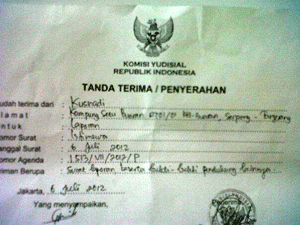 KOMISI YUDISIAL
REPUBLIK INDONESIA
TANDA TERIMA / PENYERAHAN
udah terima dari : Kusnadi
lamat : Kampung Buaran RT01/01 Buaran, Serpong -
ntuk : Laporan
omor Surat : Istimewa
anggal Surat : 6 Juli 2012
omor Agenda : 1513/VII/2012/P
iriman Berupa : Surat laporan beserta bukti-bukti pendukung lainnya.
Jakarta, 6 Juli 2012
Yang menyampaikan,